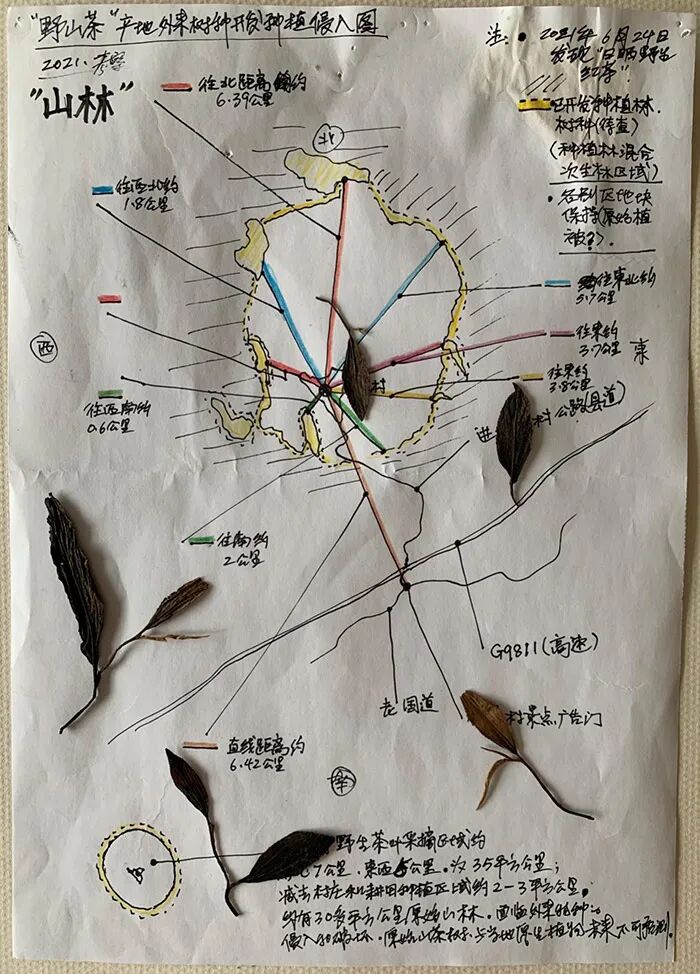 "野山茶"产地外来树种开发种植侵入图
2021.考察
"山林"
注:● 2021年6月24日
发现"日晒野生
红茶".
已开发种植林.
树种(待查)
(种植林混合
次生林区域)
• 各别区地块
保持(原始植
被?).
往北距离约
6.39公里
北
往西北约
1.8公里
往东北约
5.7公里
往東约
3.7公里
東
西
往東约
3.8公里
往西南约
0.6公里
村
进
村公路(县道)
往南约
2公里
G9811(高速)
老国道
村景点广告门
直线距离约
6.42公里
南
野生茶叶采摘区域约
7公里.東西5公里.约35平方公里;
减去村庄和耕田种植区域约2-3平方公里.
约有30多平方公里原始山林.面临外来物种
侵入和破坏.原始山茶树与当地原生植物未来不可预测.